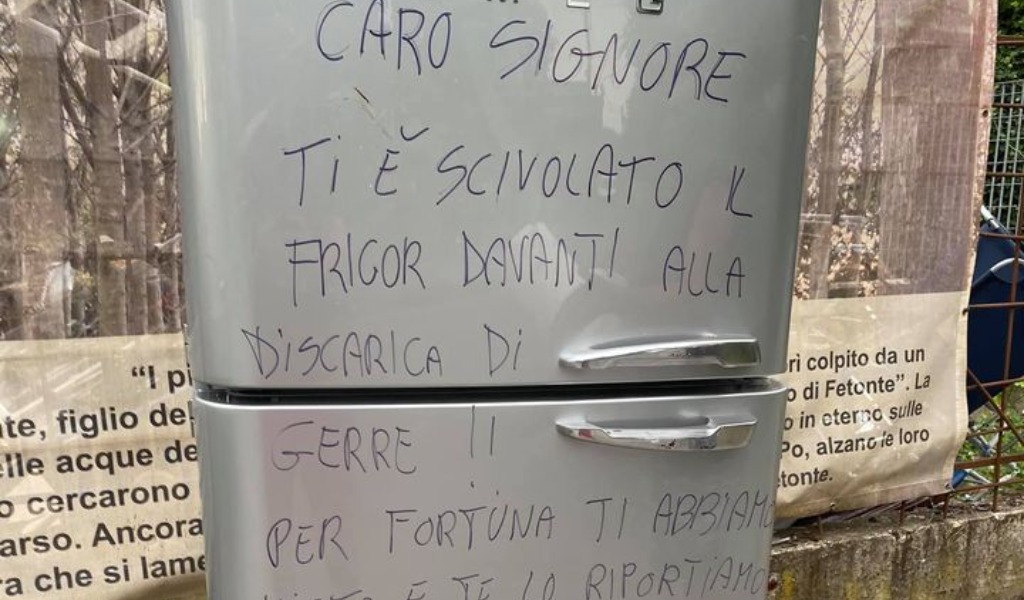 CARO SIGNORE
TI È SCIVOLATO IL
FRIGOR DAVANTI ALLA
DISCARICA DI
GERRE !!
PER FORTUNA TI ABBIAMO
E TE LO RIPORTIAMO
“I pi
nte, figlio de
elle acque de
o cercarono
arso. Ancora
ra che si lame
rì colpito da un
o di Fetonte”. La
o in eterno sulle
Po, alzano le loro
tonte.